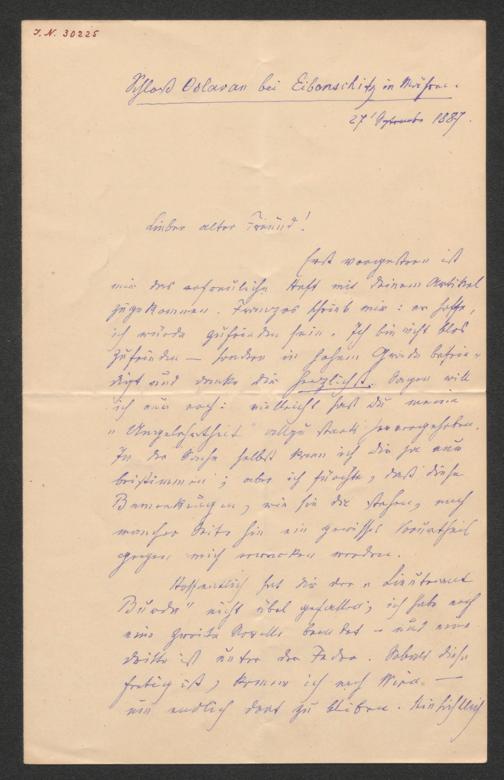 J. N. 30225
Schloß Oslavan bei Eibenschitz in Mähren.
27' September 1887.
Lieber alter Freund!
Erst vorgestern ist
mir das erfreuliche Heft mit deinem Artikel
zugekommen. Franzos schrieb mir: er hoffe,
ich würde zufrieden sein. Ich bin nicht blos
zufrieden – sondern in hohem Grade befrie-
digt und danke dir herzlichst. Sagen will
ich nur noch: vielleicht hast du meine
"Ungelehrtheit" allzu stark hervorgehoben.
In der Sache selbst kann ich dir ja nur
beistimmen; aber ich fürchte, daß diese
Bemerkungen, wie sie da stehen, nach
mancher Seite hin ein gewisses Vorurtheil
gegen mich erwecken werden.
Hoffentlich hat dir der "Lieutenant
Burda" nicht übel gefallen; ich habe noch
eine zweite Novelle beendet – und eine
dritte ist unter der Feder. Sobald diese
fertig ist, komme ich nach Wien. –
um endlich dort zu bleiben. Hinsichtlich